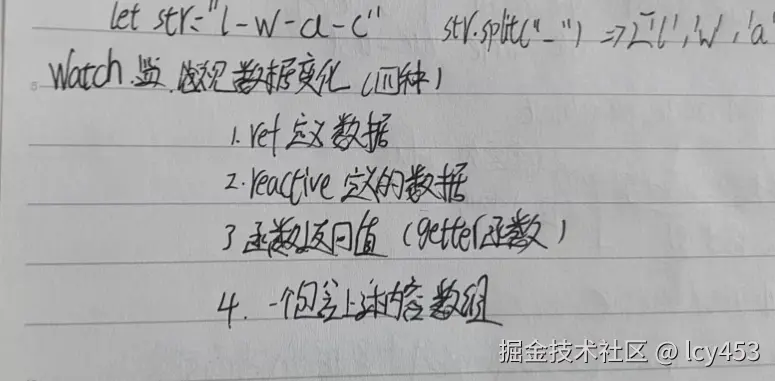 let str="l-w-a-c" str.split("-") => ['l','w','a'
Watch 监 监视数据变化（四种）
1. ref 定义数据
2. reactive 定义的数据
3 函数返回值（getter函数）
4. 一个包含上述内容数组
掘金技术社区 @ lcy453